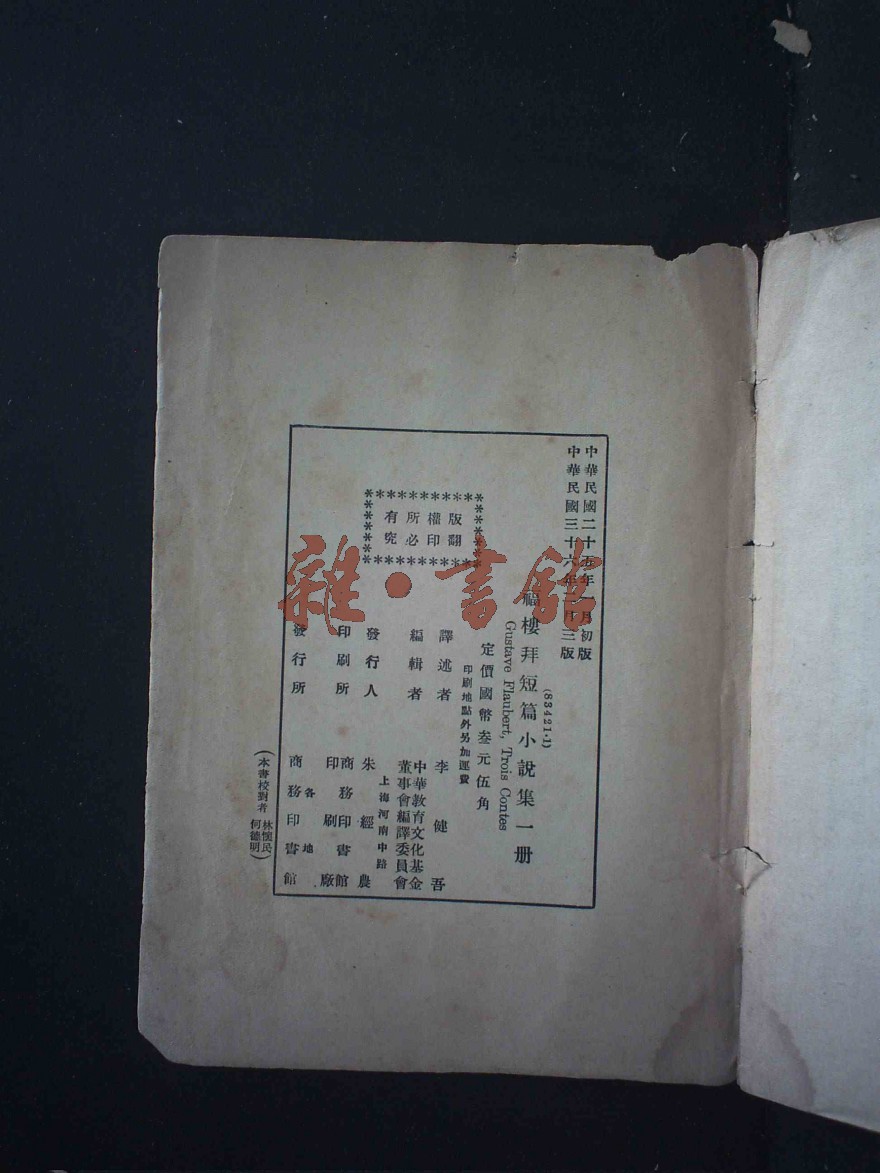 中華民國二十五年一月初版
中華民國三十六年 月三版
(83421·1)
福樓拜短篇小說集一册
Gustave Flaubert, Trois Contes
定價國幣叁元伍角
印刷地點外另加運費
版權所有
翻印必究
譯述者 李健吾
編輯者 中華教育文化基金董事會編譯委員會
發行人 朱經農
上海河南中路
印刷所 商務印書館印刷廠
發行所 商務印書館
各地
(本書校對者 林懷民
何鏸明)
雜·書館